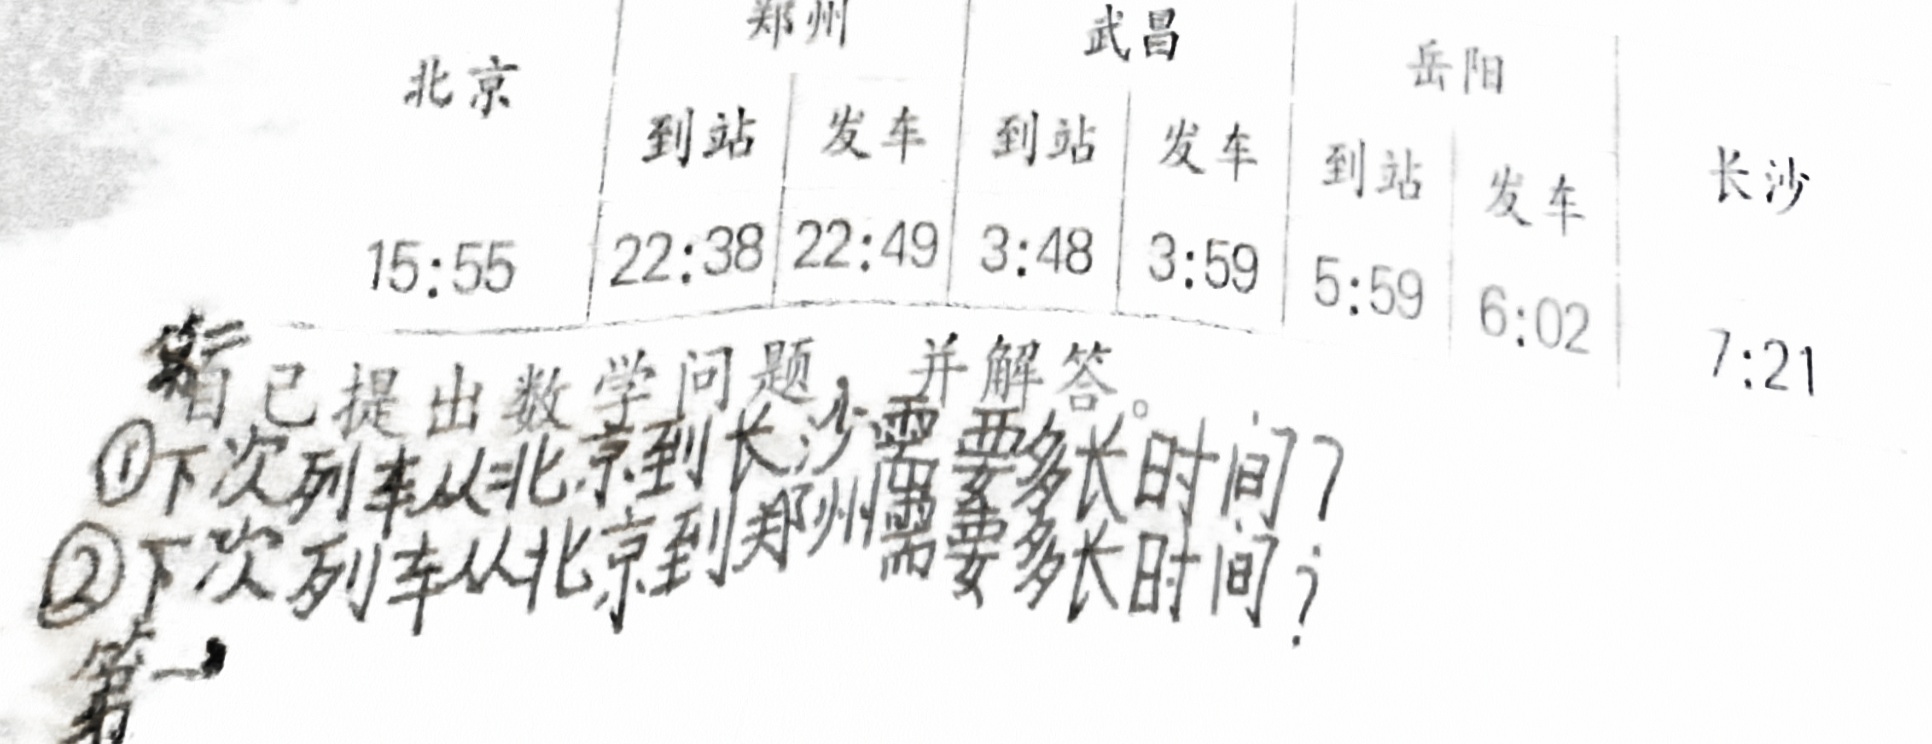 北京 郑州 武昌 岳阳 长沙
到站 发车 到站 发车 到站 发车
15:55 22:38 22:49 3:48 3:59 5:59 6:02 7:21
自己提出数学问题，并解答。
①下次列车从北京到长沙需要多长时间？
②下次列车从北京到郑州需要多长时间？
第一